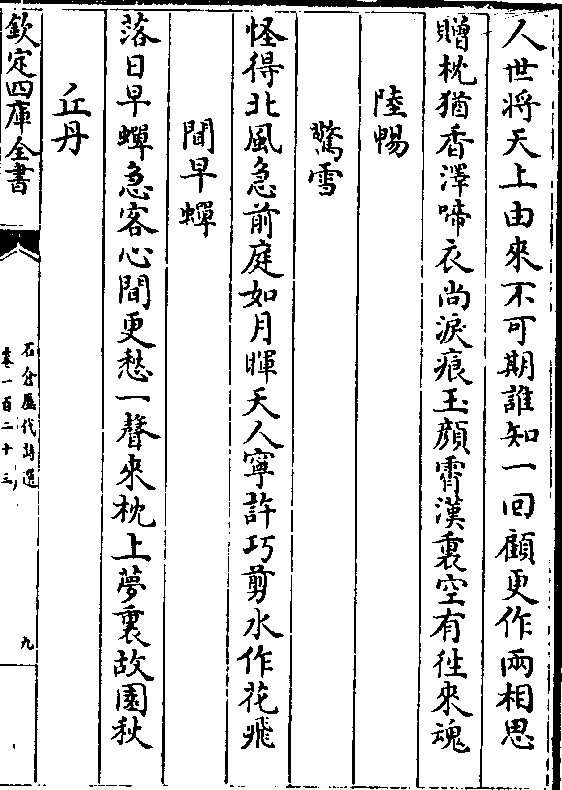 人世将天上由來不可期誰知一回顧更作兩相思
贈枕猶香澤啼衣尚淚痕玉顔霄漢裏空有徃來魂
陸暢
驚雪
怪得北風急前庭如月暉天人寧許巧剪水作花飛
聞早蟬
落日早蟬急客心聞更愁一聲來枕上夢裏故園秋
丘丹
欽定四庫全書
石倉歷代詩選
卷一百二十三
九